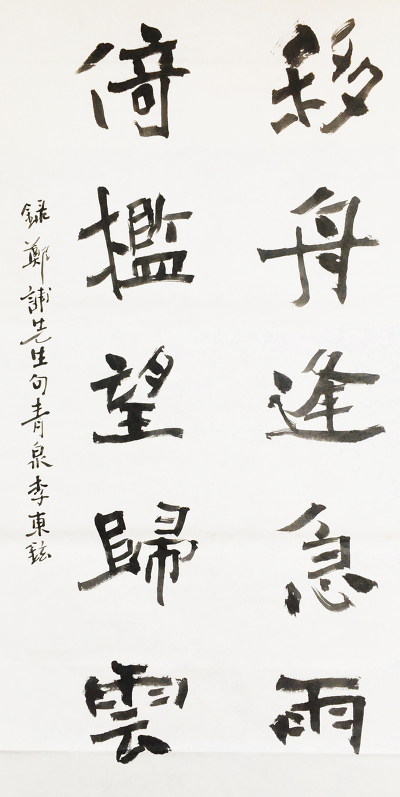 移舟逢急雨
倚檻望歸雲
錄鄭誧先生句青泉李東鉉